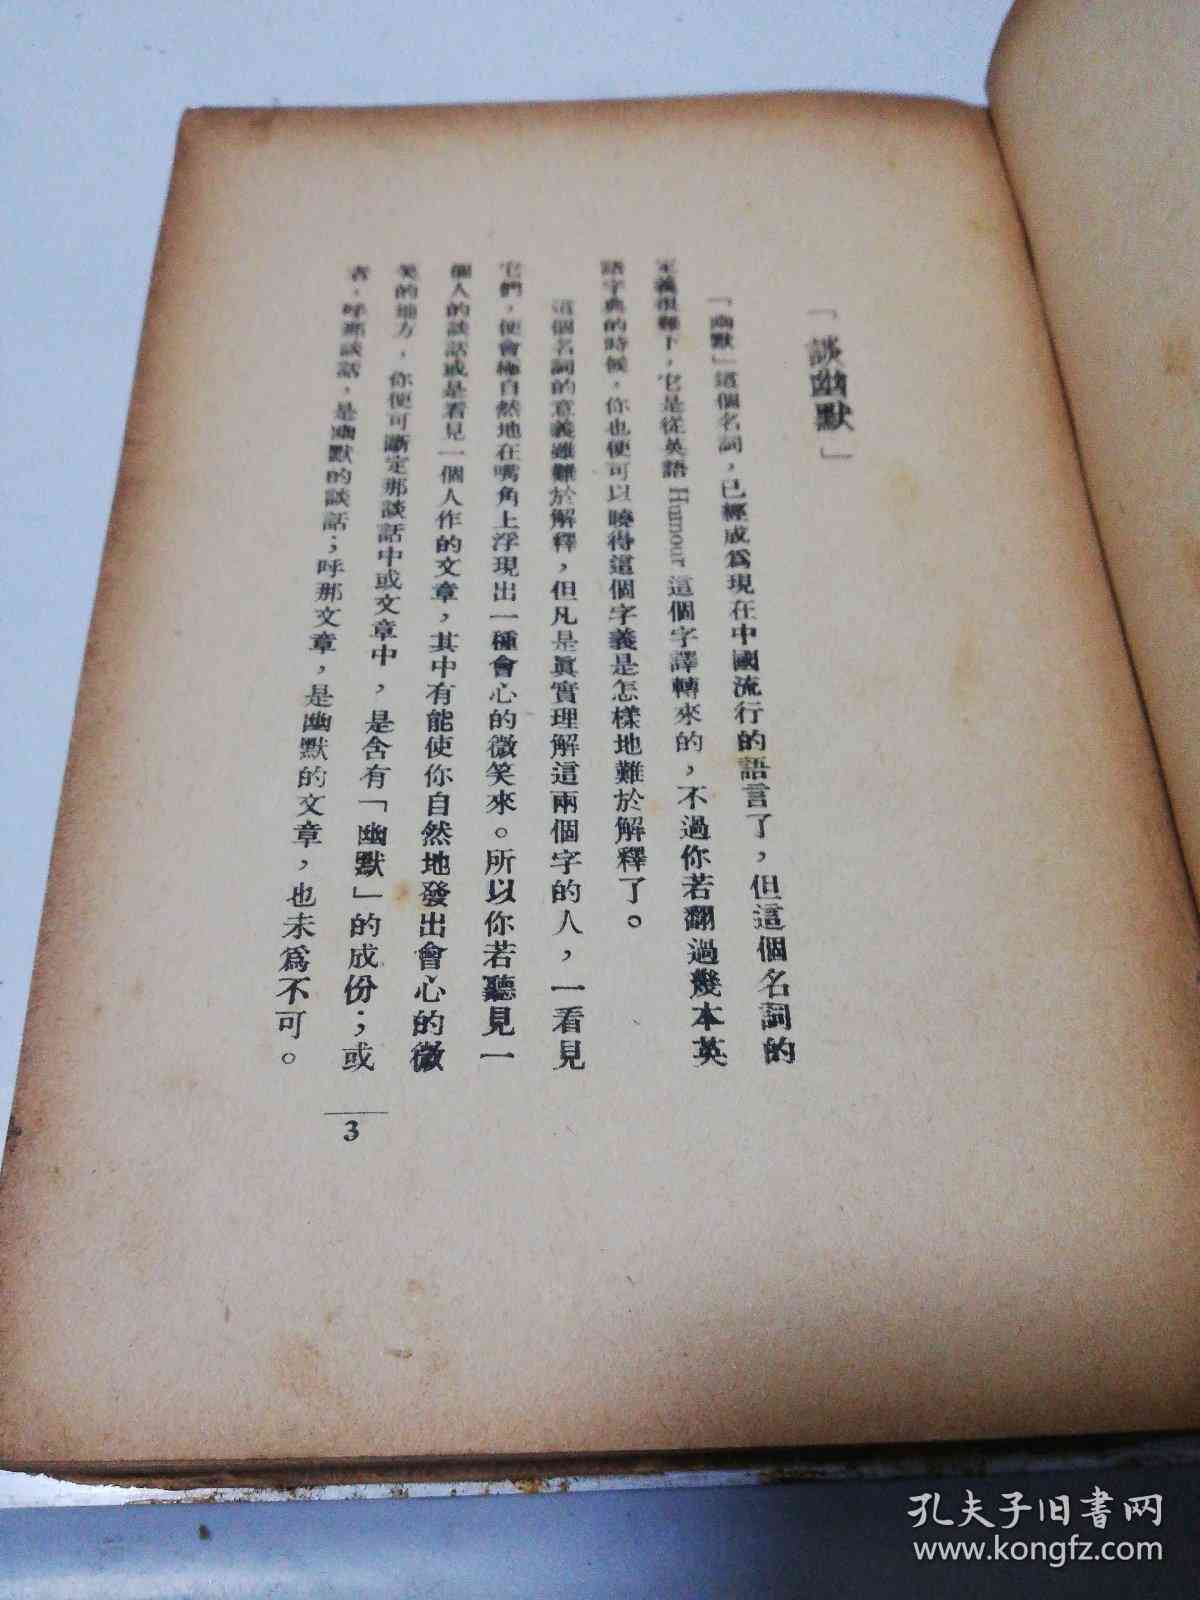 「談幽默」
「幽默」這個名詞，已經成爲現在中國流行的語言了，但這個名詞的
定義很難下，它是從英語 Humour 這個字譯轉來的，不過你若翻過幾本英
語字典的時候，你也便可以曉得這個字義是怎樣地難於解釋了。
這個名詞的意義雖難於解釋，但凡是眞實理解這兩個字的人，一看見
它們，便會極自然地在嘴角上浮現出一種會心的微笑來。所以你若聽見一
個人的談話或是看見一個人作的文章，其中有能使你自然地發出會心的微
笑的地方，你便可斷定那談話中或文章中，是含有「幽默」的成份；或
者，呼那談話，是幽默的談話；呼那文章，是幽默的文章，也未爲不可。
3
孔夫子旧书网
www.kongfz.com